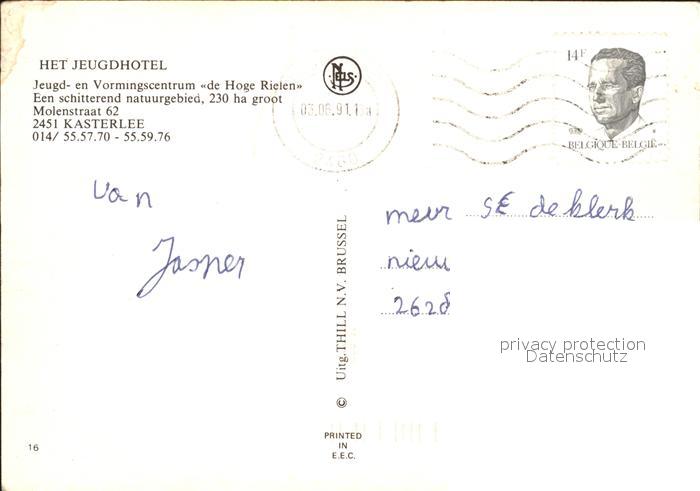 HET JEUGDHOTEL
Jeugd- en Vormingscentrum «de Hoge Rielen»
Een schitterend natuurgebied, 230 ha groot
Molenstraat 62
2451 KASTERLEE
014/ 55.57.70 - 55.59.76
NELS
03.06.91.1
2460
14F
BELGIQUE-BELGIË
van
Jasper
de klerk
2628
Uitg. THILL N.V. BRUSSEL
©
privacy protection
Datenschutz
PRINTED
IN
E.E.C.
16